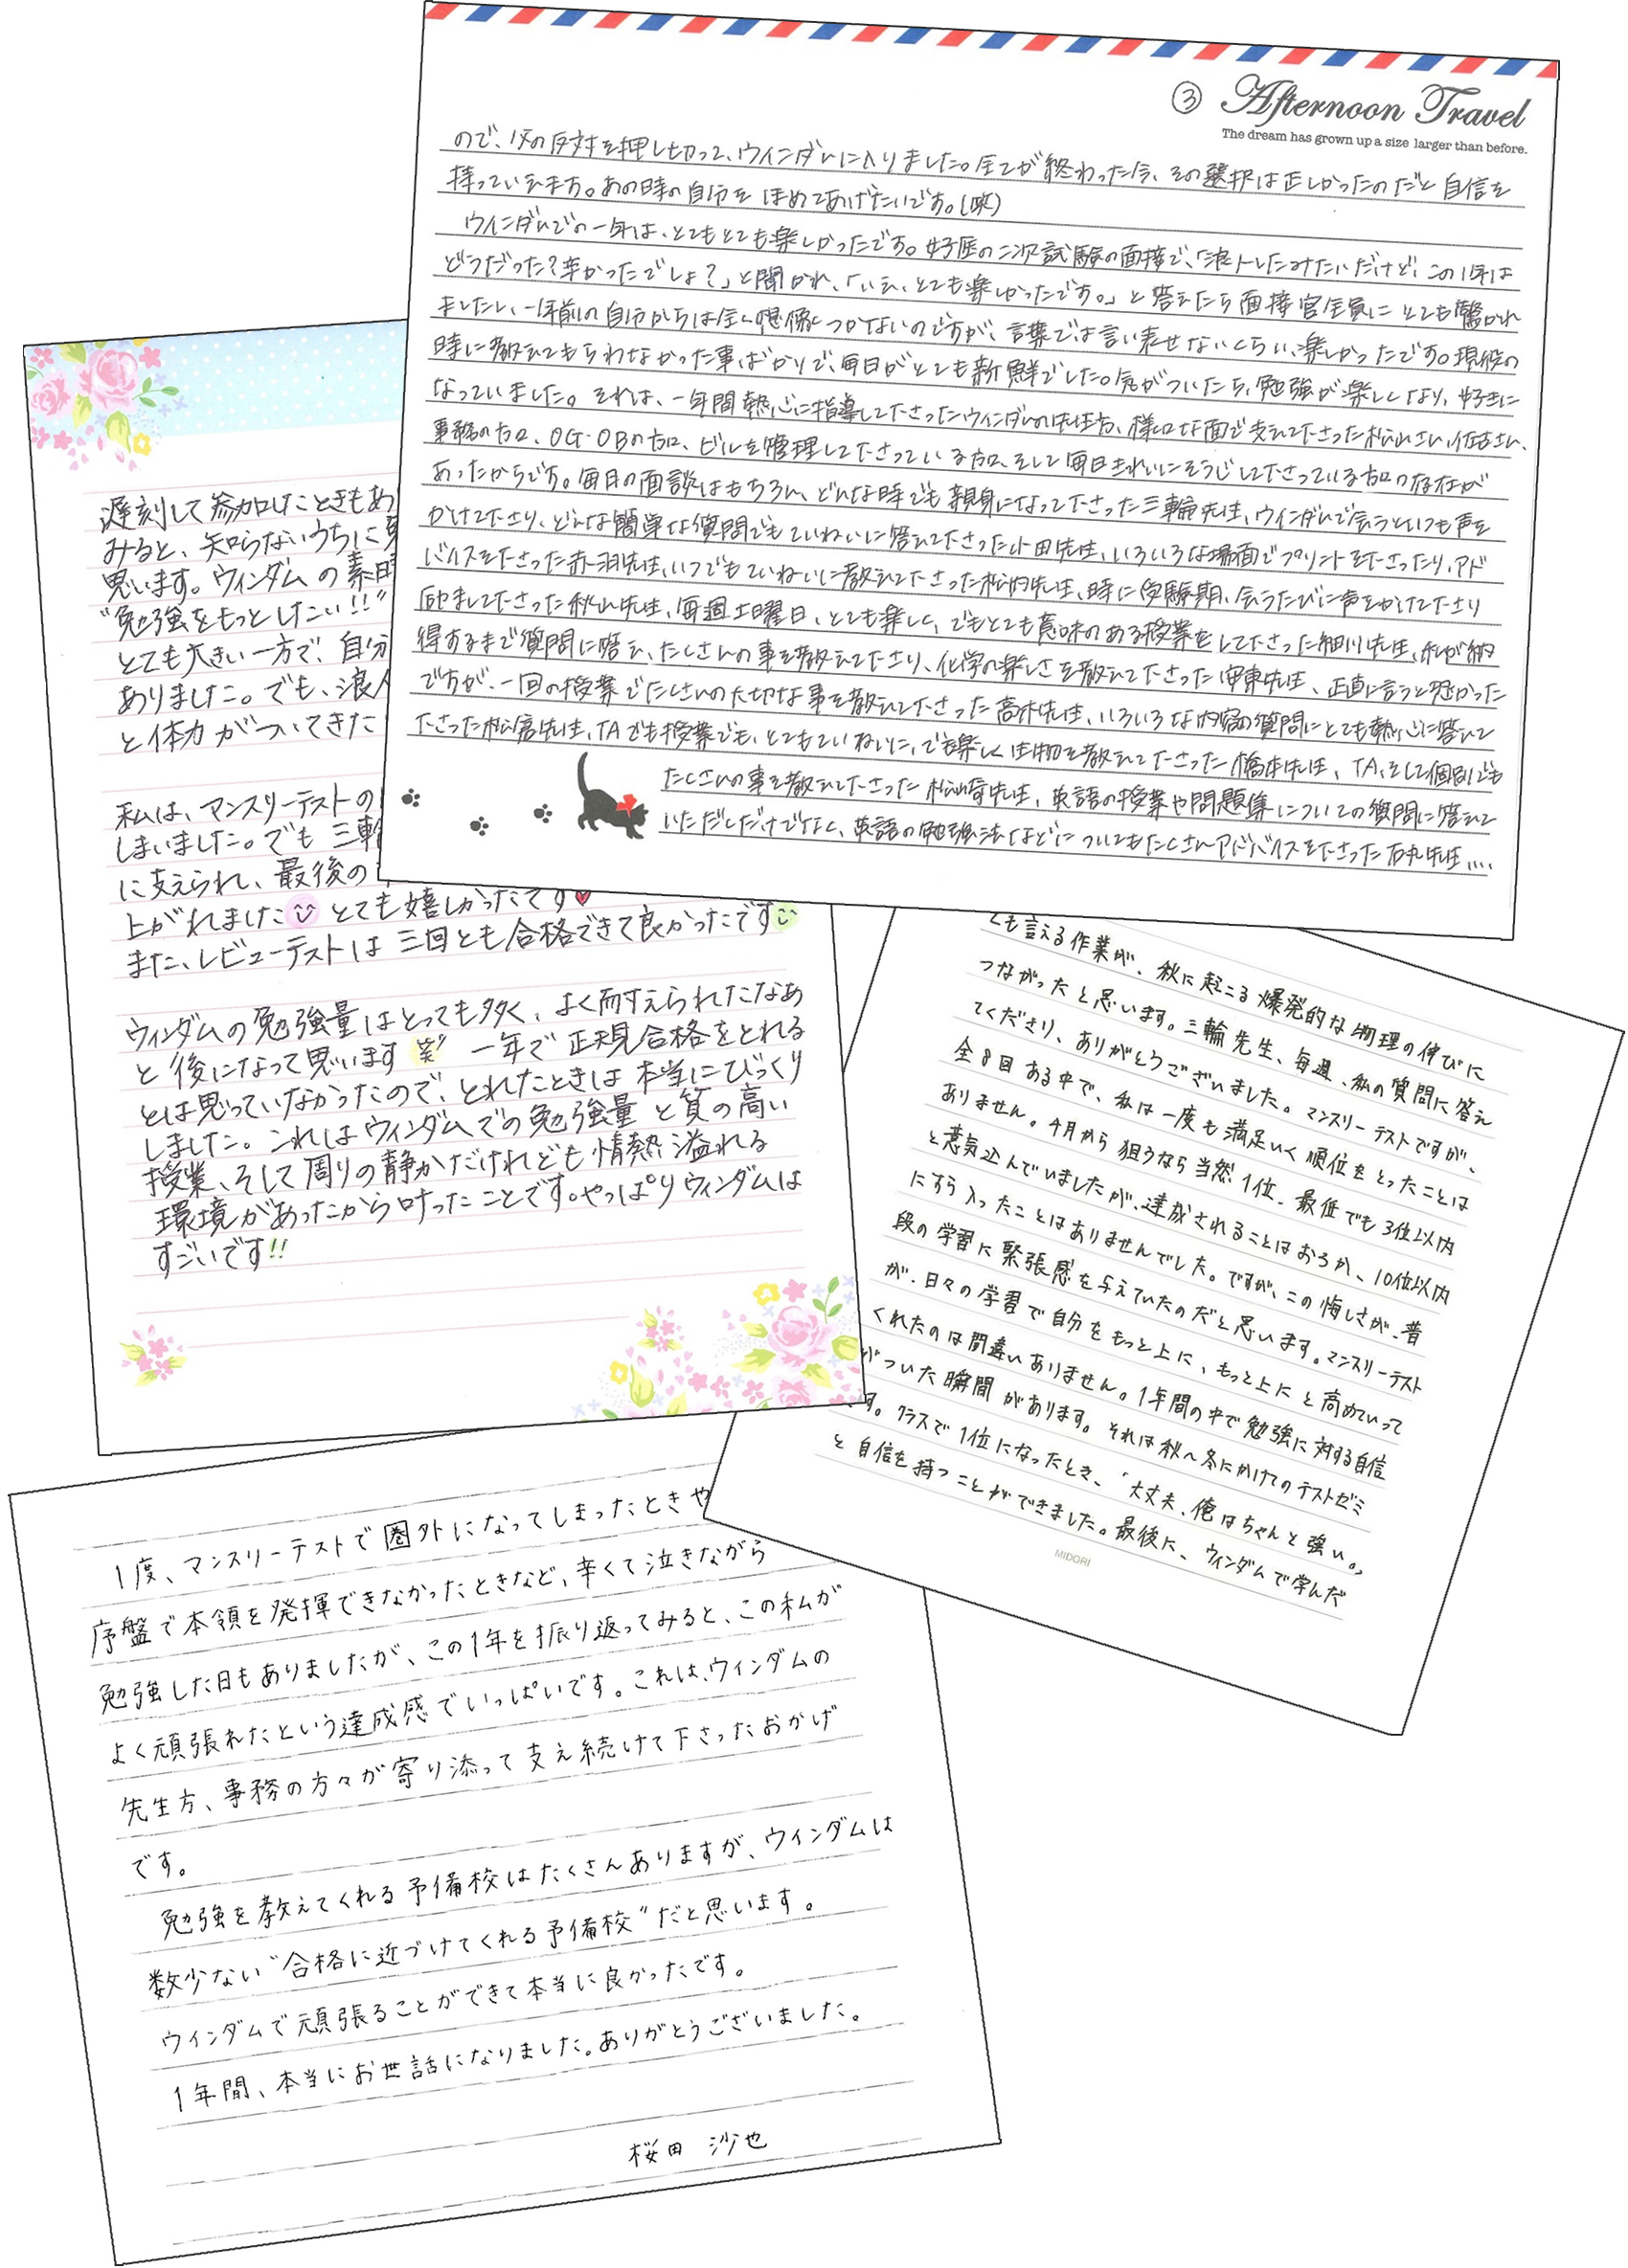 ③ Afternoon Travel
The dream has grown up a size larger than before.
ので、父の反対を押し切って、ウィンダムに入りました。全てが終わった今、その選択は正しかったのだと自信を
持っています。あの時の自分をほめてあげたいです。(笑)
ウィンダムでの一年は、とてもとても楽しかったです。の二次試験の面接で、「浪人したみたいだけど、この1年は
どうだった?辛かったでしょ?」と聞かれ、「いえ、とても楽しかったです。」と答えたら面接官全員にとても驚かれ
ましたし、一年前の自分からは全く想像つかないのですが、言葉では言い表せないくらい、楽しかったです。現役の
時に教えてもらわなかった事ばかりで、毎日がとても新鮮でした。気がついたら、勉強が楽しくなり、好きに
なっていました。それは、一年間熱心に指導して下さったウィンダムの先生方、様々な面で支えて下さった松山さん、
事務の方々、OG・OBの方々、ビルを管理して下さっている方々、そして毎日きれいにそうじして下さっている方々の存在が
あったからです。毎日の面談はもちろん、どんな時でも親身になって下さった三輪先生、ウィンダムで会うといつも声を
かけて下さり、どんな簡単な質問でもていねいに答えて下さった小田先生、いろいろな場面でプリントを下さったり、アド
バイスを下さった赤羽先生、いつでもていねいに教えて下さった先生、時に受験期、会うたびに声をかけて下さり
励まして下さった秋山先生、毎週土曜日、とても楽しく、でもとても意味のある授業をして下さった細川先生、私が納
得するまで質問に答え、たくさんの事を教えて下さり、化学の楽しさを教えて下さった安東先生、正直に言うと恐かった
ですが、一回の授業でたくさんの大切な事を教えて下さった高木先生、いろいろな内容の質問にとても熱心に答えて
下さった先生、TAでも授業でも、とてもていねいに、でも楽しく生物を教えて下さった橋本先生、TA、そして個別でも
たくさんの事を教えて下さった先生、英語の授業や問題集についての質問に答えて
いただくだけでなく、英語の勉強法などについてもたくさんアドバイスを下さった石丸先生....
遅刻して参加したときもあ
みると、知らないうちに
思います。ウィンダムの素
"勉強をもっとしたい!!"
とても大きい一方で、自分
ありました。でも、浪人
と体力がついてきた
私は、マンスリーテストの
しまいました。でも三輪
に支えられ、最後の
上がれました とても嬉しかったです
また、レビューテストは三回とも合格できて良かったです
ウィンダムの勉強量はとっても多く、よく耐えられたなあ
と後になって思います 笑 一年で正規合格をとれる
とは思っていなかったので、とれたときは本当にびっくり
しました。これはウィンダムでの勉強量と質の高い
授業、そして周りの静かだけれども情熱溢れる
環境があったから叶ったことです。やっぱりウィンダムは
すごいです!!
とも言える作業が、秋に起こる爆発的な物理の伸びに
つながったと思います。三輪先生、毎週、私の質問に答え
てくださり、ありがとうございました。マンスリーテストですが、
全8回ある中で、私は一度も満足いく順位をとったことは
ありません。4月から狙うなら当然1位、最低でも3位以内
と意気込んでいましたが、達成されることはおろか、10位以内
にすら入ったことはありませんでした。ですが、この悔しさが、普
段の学習に緊張感を与えていたのだと思います。マンスリーテスト
が、日々の学習で自分をもっと上に、もっと上にと高めていって
くれたのは間違いありません。1年間の中で勉強に対する自信
がついた瞬間があります。それは秋〜冬にかけてのテストゼミ
です。クラスで1位になったとき、"大丈夫、俺はちゃんと強い。"
と自信を持つことができました。最後に、ウィンダムで学んだ
MIDORI
1度、マンスリーテストで圏外になってしまったときや
序盤で本領を発揮できなかったときなど、辛くて泣きながら
勉強した日もありましたが、この1年を振り返ってみると、この私が
よく頑張れたという達成感でいっぱいです。これは、ウィンダムの
先生方、事務の方々が寄り添って支え続けて下さったおかげ
です。
勉強を教えてくれる予備校はたくさんありますが、ウィンダムは
数少ない"合格に近づけてくれる予備校"だと思います。
ウィンダムで頑張ることができて本当に良かったです。
1年間、本当にお世話になりました。ありがとうございました。
桜田 沙也